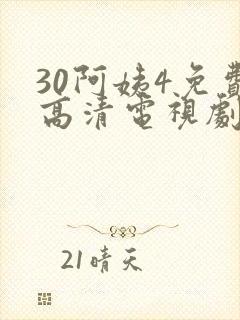 30阿姨4免費
高清電視劇
21晴天